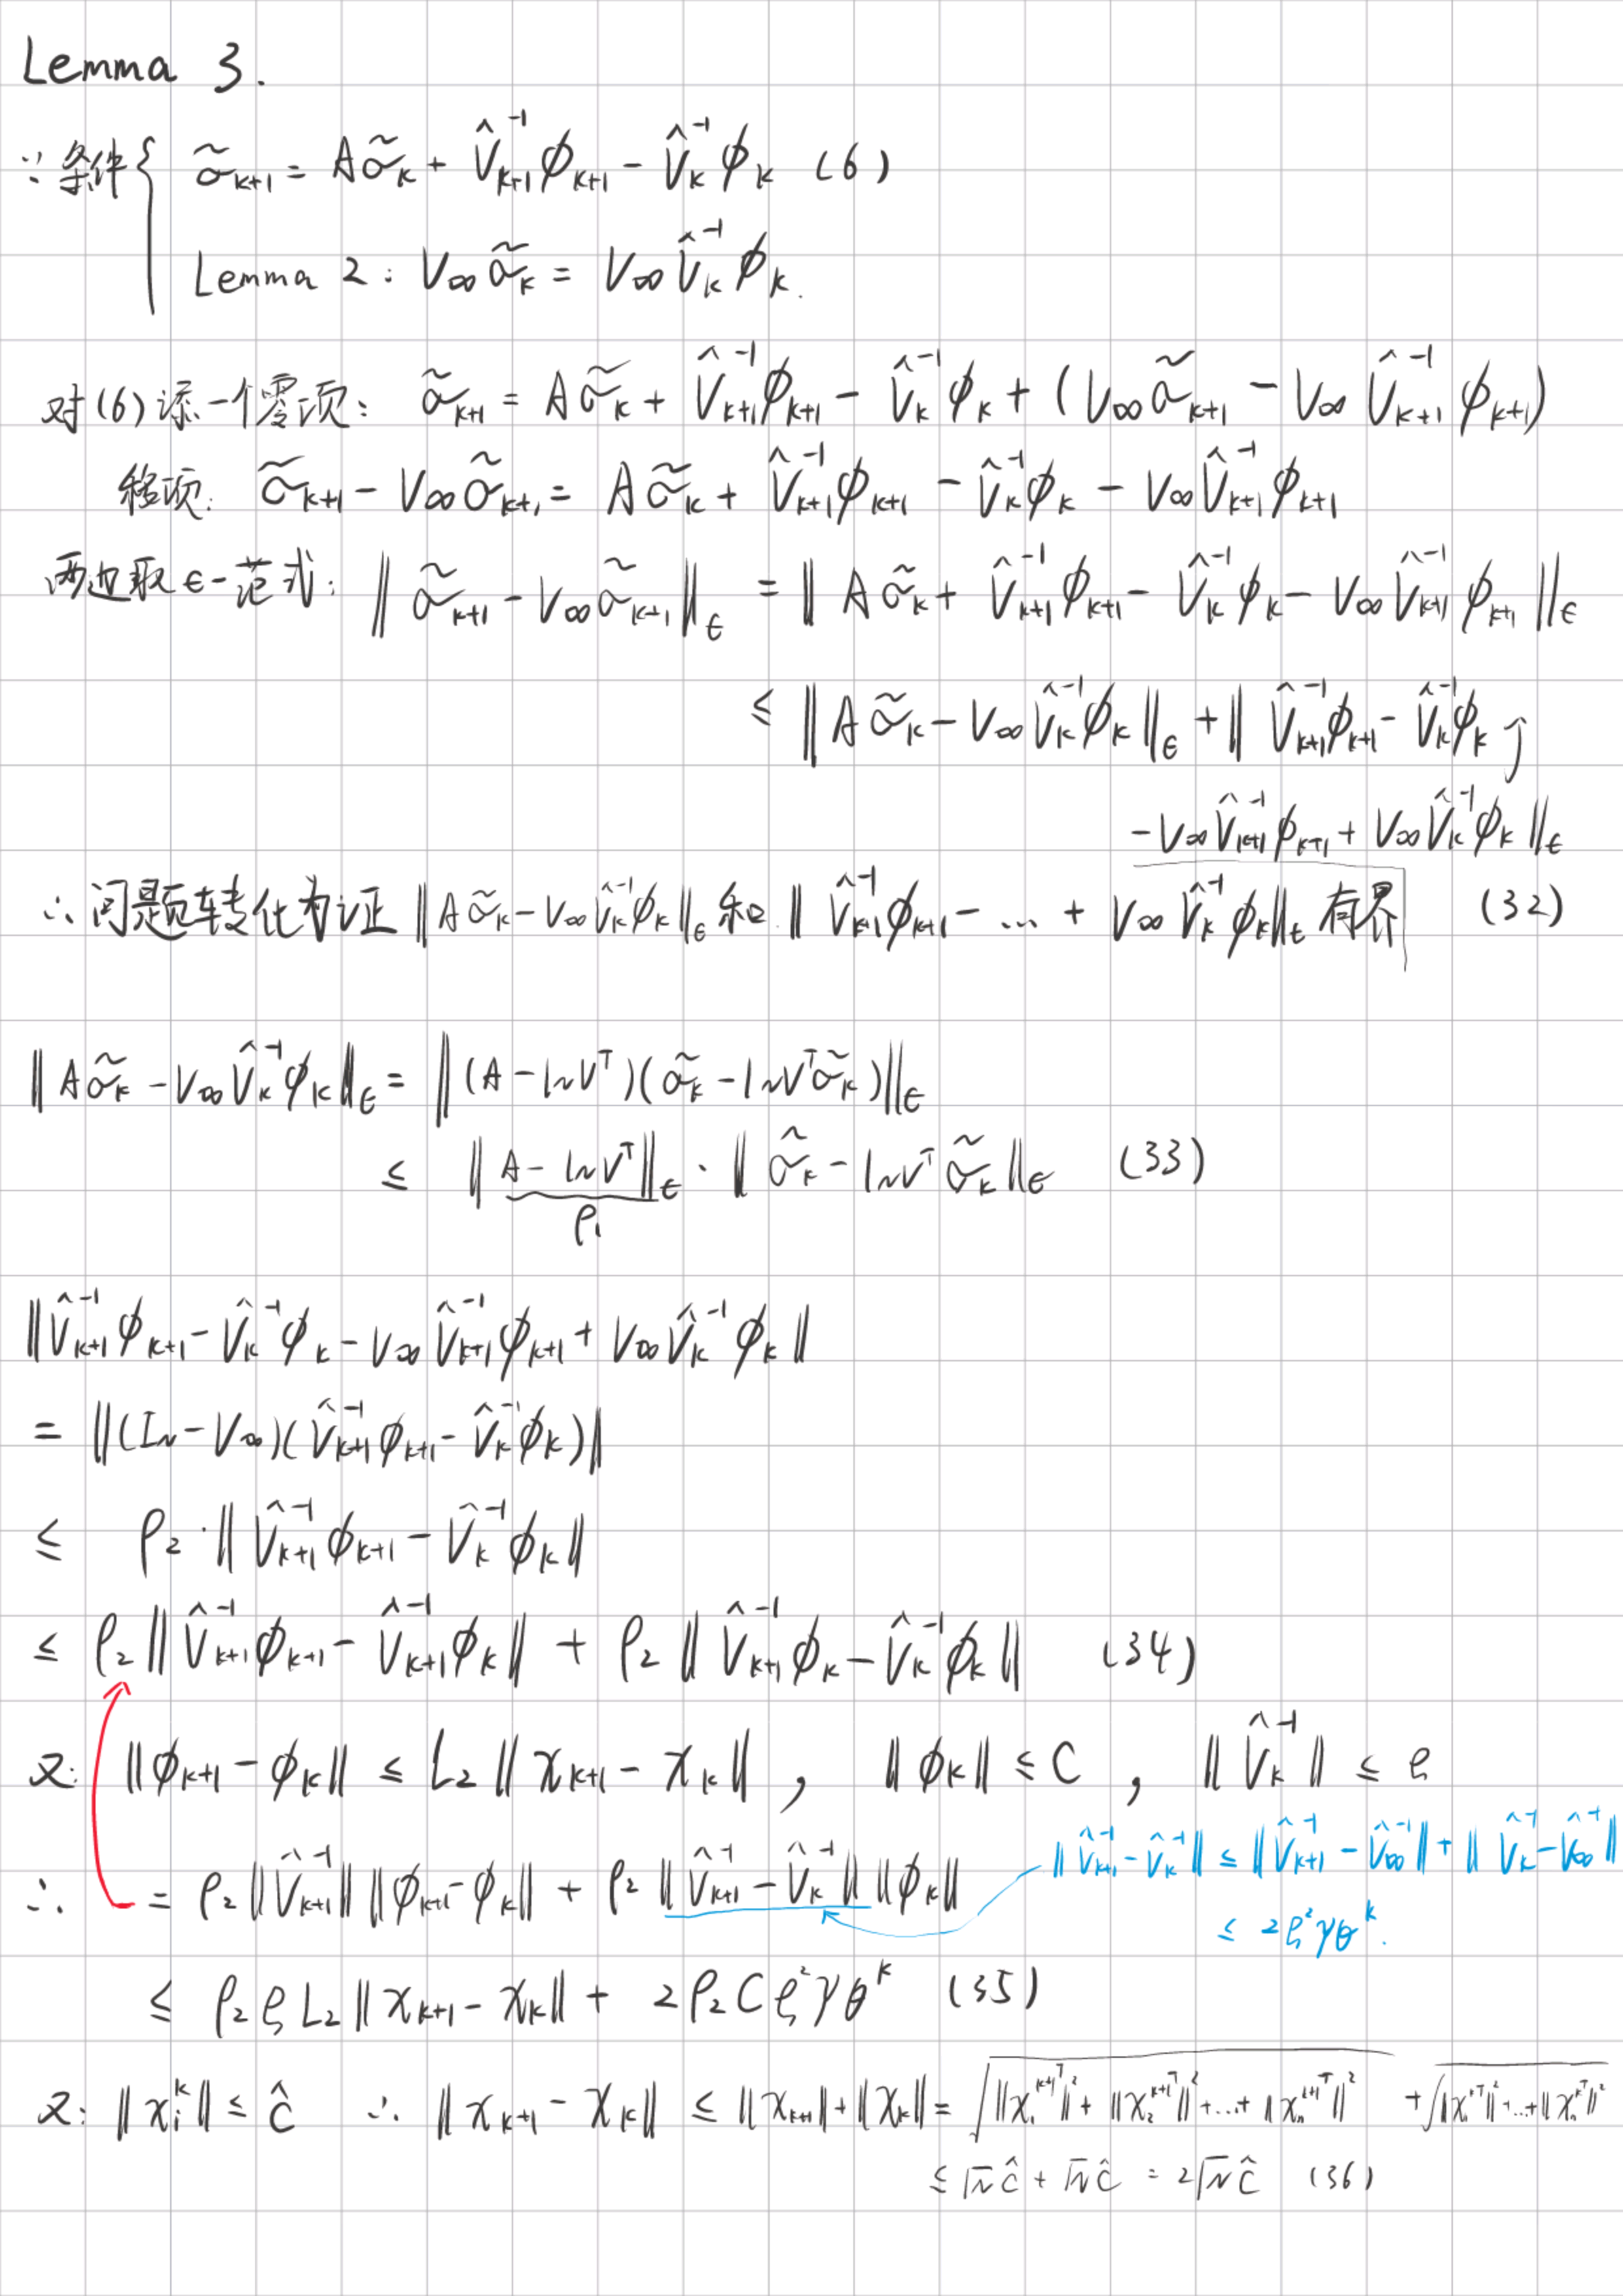 Lemma 3.
∵ 条件 { σ̃_{k+1} = Aσ̃_k + V̂_{k+1}^{-1}φ_{k+1} − V̂_k^{-1}φ_k (6)
Lemma 2: V_∞σ̃_k = V_∞V̂_k^{-1}φ_k.
对(6)添一个零项: σ̃_{k+1} = Aσ̃_k + V̂_{k+1}^{-1}φ_{k+1} − V̂_k^{-1}φ_k + (V_∞σ̃_{k+1} − V_∞V̂_{k+1}^{-1}φ_{k+1})
移项: σ̃_{k+1} − V_∞σ̃_{k+1} = Aσ̃_k + V̂_{k+1}^{-1}φ_{k+1} − V̂_k^{-1}φ_k − V_∞V̂_{k+1}^{-1}φ_{k+1}
两边取ϵ-范式: ‖σ̃_{k+1} − V_∞σ̃_{k+1}‖_ϵ = ‖Aσ̃_k + V̂_{k+1}^{-1}φ_{k+1} − V̂_k^{-1}φ_k − V_∞V̂_{k+1}^{-1}φ_{k+1}‖_ϵ
≤ ‖Aσ̃_k − V_∞V̂_k^{-1}φ_k‖_ϵ + ‖V̂_{k+1}^{-1}φ_{k+1} − V̂_k^{-1}φ_k
− V_∞V̂_{k+1}^{-1}φ_{k+1} + V_∞V̂_k^{-1}φ_k‖_ϵ
∴ 问题转化为证 ‖Aσ̃_k − V_∞V̂_k^{-1}φ_k‖_ϵ 和 ‖V̂_{k+1}^{-1}φ_{k+1} − ... + V_∞V̂_k^{-1}φ_k‖_ϵ 有界 (32)
‖Aσ̃_k − V_∞V̂_k^{-1}φ_k‖_ϵ = ‖(A − 1_N V^T)(σ̃_k − 1_N V^T σ̃_k)‖_ϵ
≤ ‖A − 1_N V^T‖_ϵ · ‖σ̃_k − 1_N V^T σ̃_k‖_ϵ (33)
ρ_1
‖V̂_{k+1}^{-1}φ_{k+1} − V̂_k^{-1}φ_k − V_∞V̂_{k+1}^{-1}φ_{k+1} + V_∞V̂_k^{-1}φ_k‖
= ‖(I_N − V_∞)(V̂_{k+1}^{-1}φ_{k+1} − V̂_k^{-1}φ_k)‖
≤ ρ_2 · ‖V̂_{k+1}^{-1}φ_{k+1} − V̂_k^{-1}φ_k‖
≤ ρ_2‖V̂_{k+1}^{-1}φ_{k+1} − V̂_{k+1}^{-1}φ_k‖ + ρ_2‖V̂_{k+1}^{-1}φ_k − V̂_k^{-1}φ_k‖ (34)
又: ‖φ_{k+1} − φ_k‖ ≤ L_2‖x_{k+1} − x_k‖ , ‖φ_k‖ ≤ C , ‖V̂_k^{-1}‖ ≤ ξ
∴ = ρ_2‖V̂_{k+1}^{-1}‖‖φ_{k+1} − φ_k‖ + ρ_2‖V̂_{k+1}^{-1} − V̂_k^{-1}‖‖φ_k‖
‖V̂_{k+1}^{-1} − V̂_k^{-1}‖ ≤ ‖V̂_{k+1}^{-1} − V̂_∞^{-1}‖ + ‖V̂_k^{-1} − V̂_∞^{-1}‖
≤ 2ξ²γθ^k.
≤ ρ_2ξL_2‖x_{k+1} − x_k‖ + 2ρ_2Cξ²γθ^k (35)
又: ‖x_i^k‖ ≤ ĉ ∴ ‖x_{k+1} − x_k‖ ≤ ‖x_{k+1}‖ + ‖x_k‖ = √(‖x_1^{k+1 T}‖² + ‖x_2^{k+1 T}‖² + ... + ‖x_n^{k+1 T}‖²) + √(‖x_1^{k T}‖² + ... + ‖x_n^{k T}‖²)
≤ √N ĉ + √N ĉ = 2√N ĉ (36)